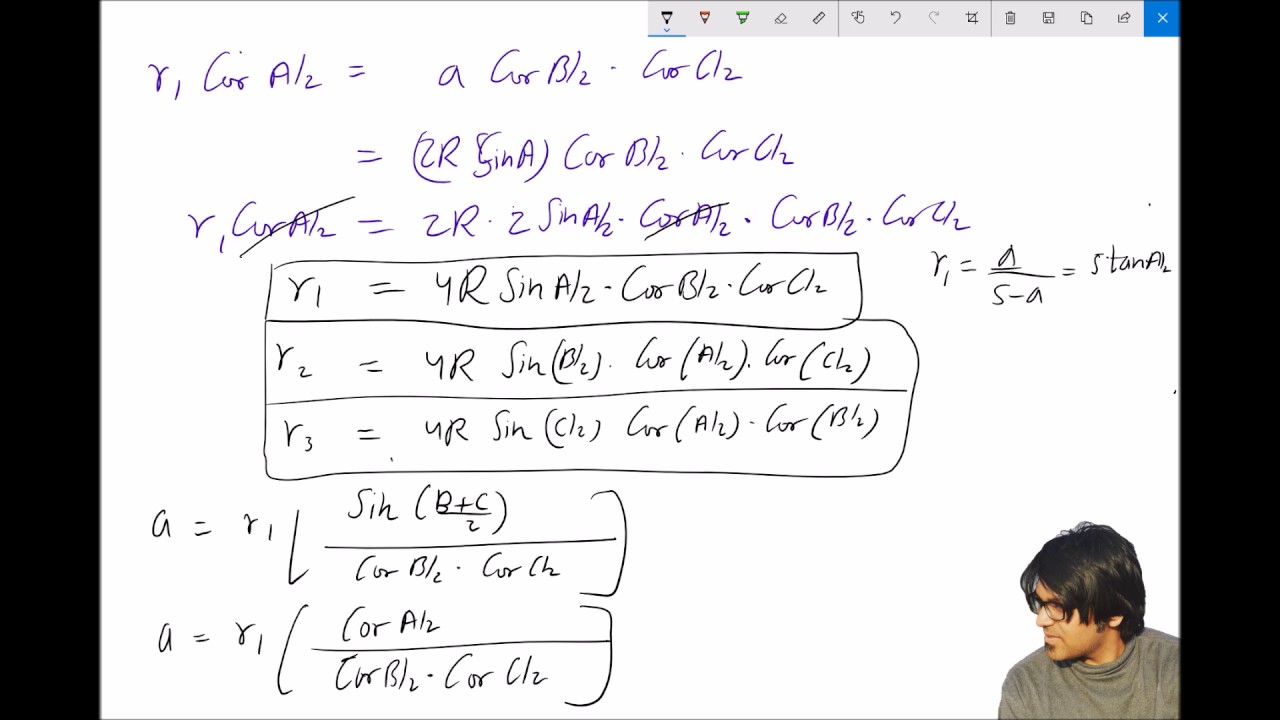 r₁ Cos A/2 = a Cos B/2 · Cos C/2
= (2R SinA) Cos B/2 · Cos C/2
r₁ Cos A/2 = 2R · 2 Sin A/2 · Cos A/2 · Cos B/2 · Cos C/2
r₁ = 4R Sin A/2 · Cos B/2 · Cos C/2
r₁ = Δ/(s-a) = s tan A/2
r₂ = 4R Sin(B/2) · Cos(A/2) · Cos(C/2)
r₃ = 4R Sin(C/2) Cos(A/2) · Cos(B/2)
a = r₁ [ Sin((B+C)/2) / Cos B/2 · Cos C/2 ]
a = r₁ ( Cos A/2 / Cos B/2 · Cos C/2 ]